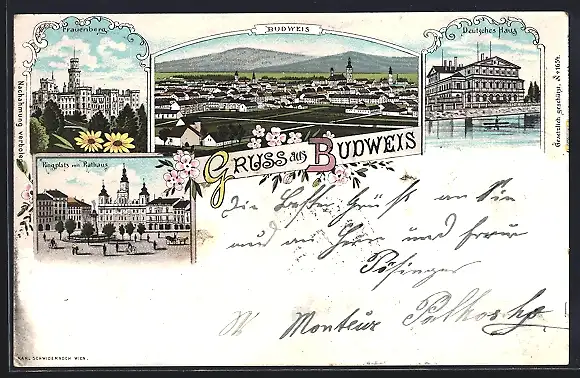 Frauenberg
BUDWEIS
Deutsches Haus
Nachahmung verboten
Gesetzlich geschützt. No 1659.
Ringplatz mit Rathaus
GRUSS aus BUDWEIS
Die besten Grüße an Sie
und an Herrn und Frau
Pösinger
Monteur
KARL SCHWIDERNOCH WIEN.